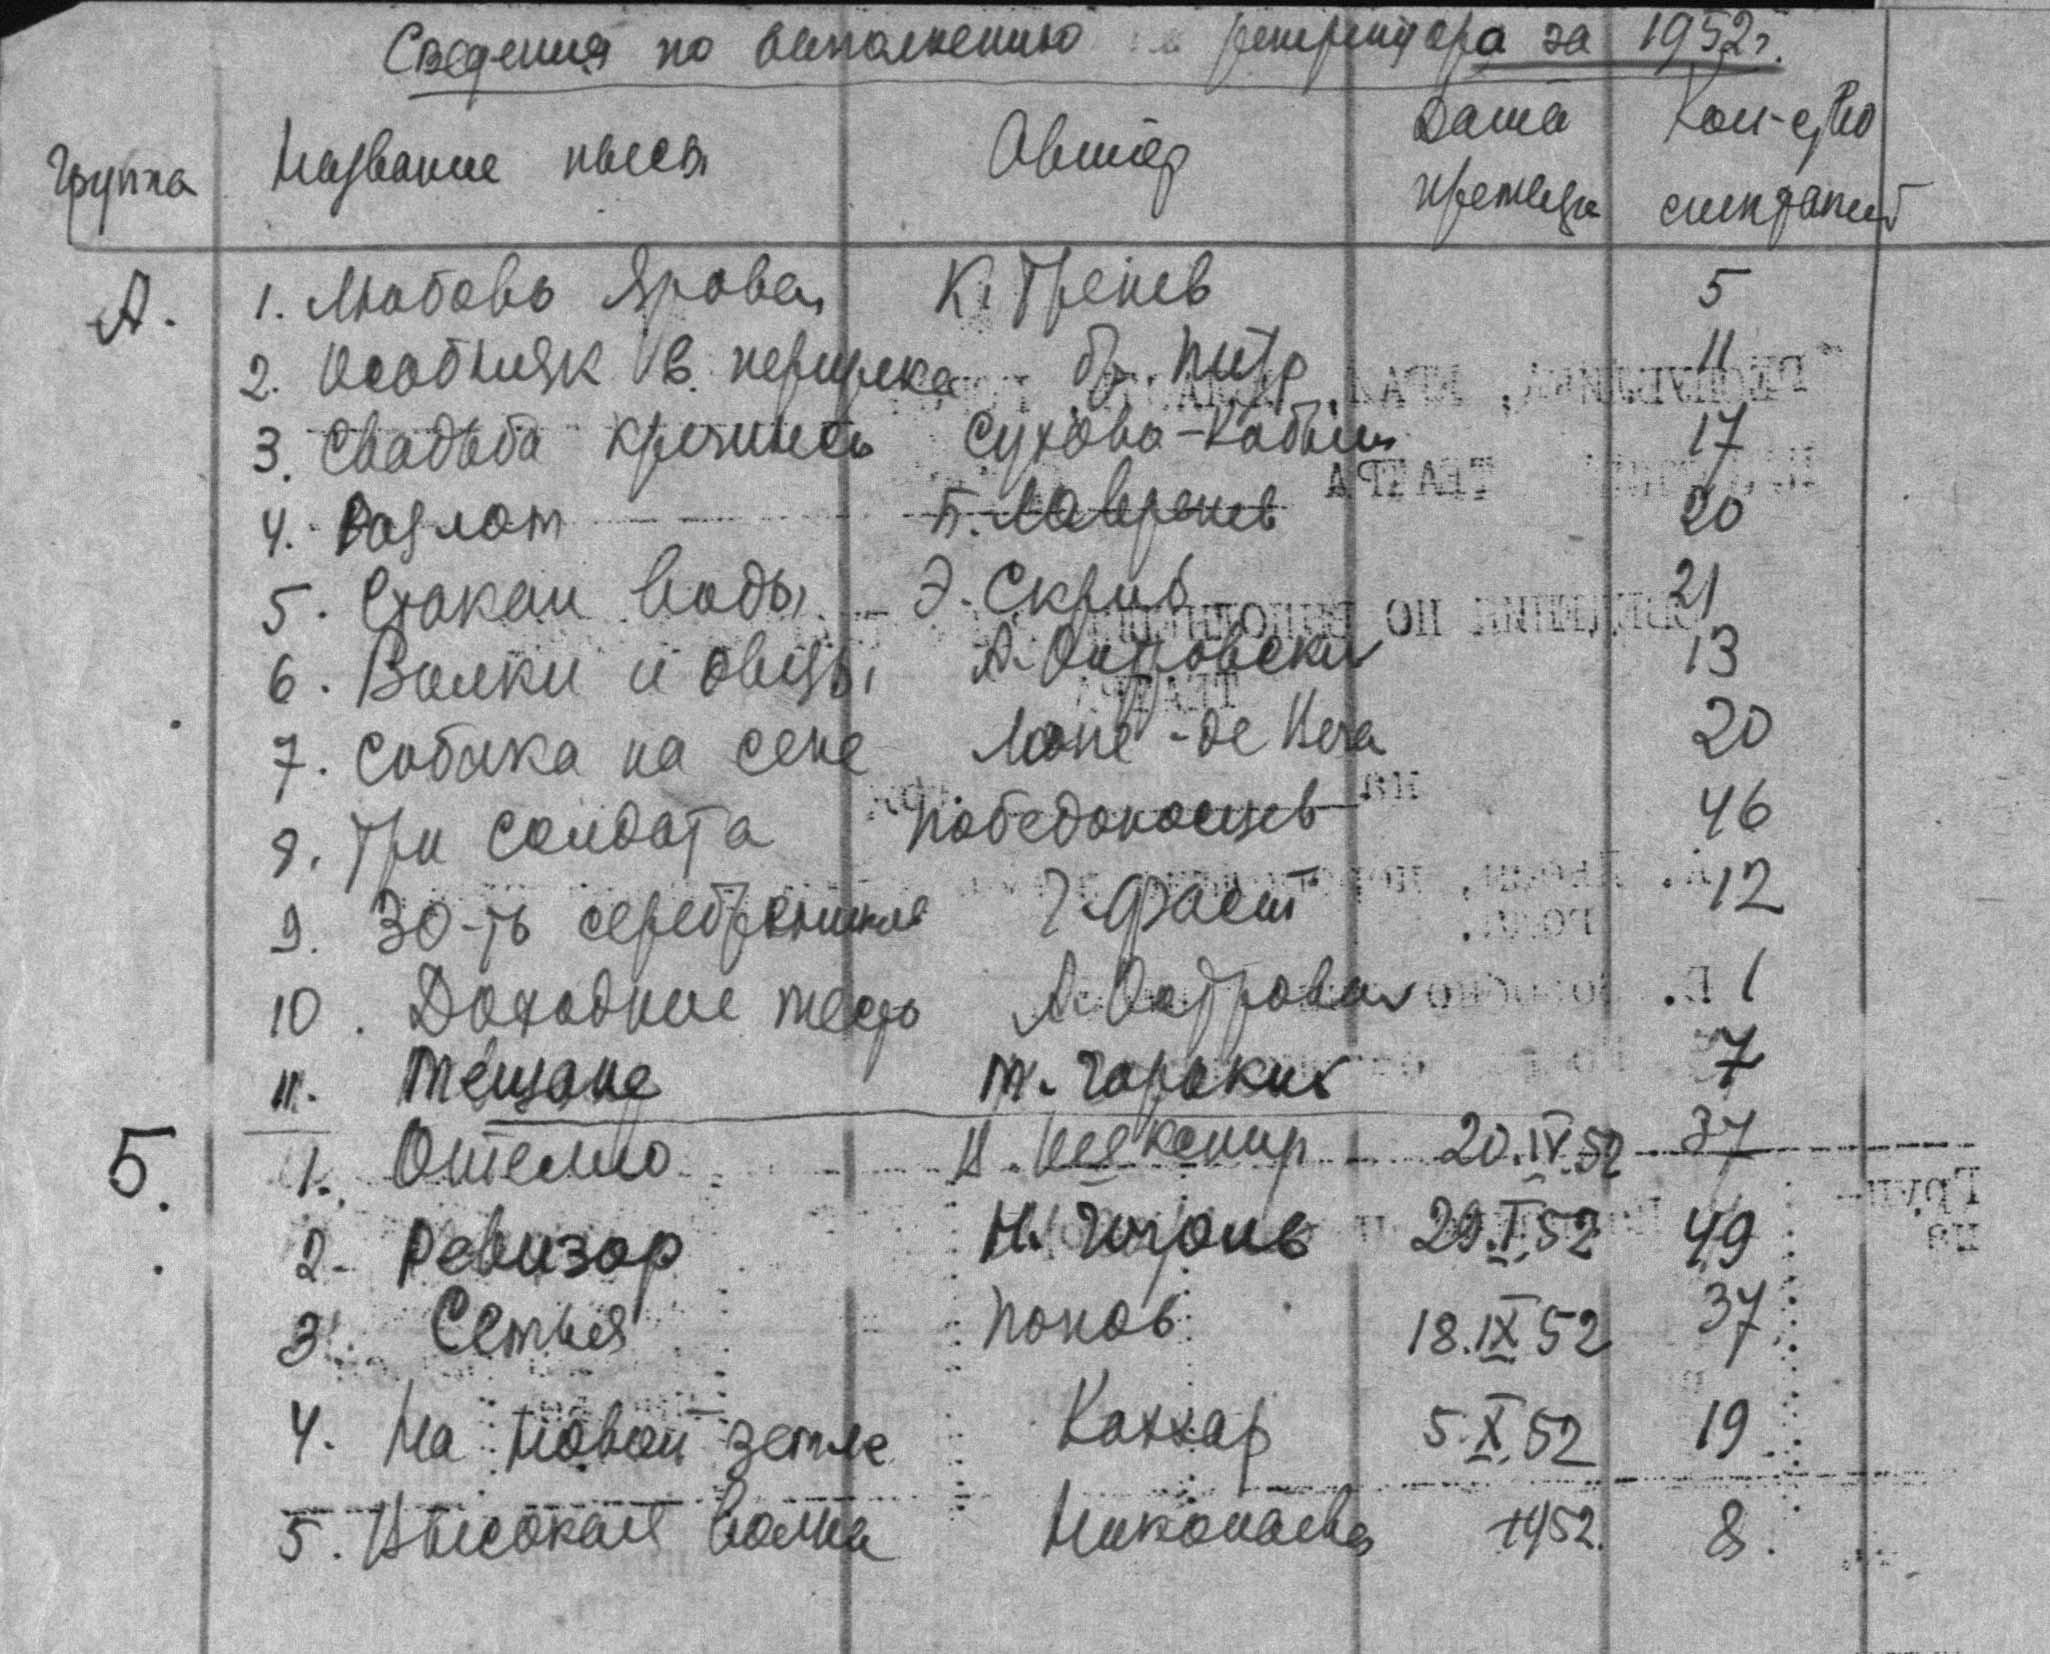 Сведения по выполнению репертуара за 1952г.
Группа Название пьесы Автор Дата премьеры Кол-ство спектаклей
А. 1. Любовь Яровая К. Тренев 5
2. Особняк в переулке бр. Тур 11
3. Свадьба Кречинск Сухово-Кобылин 17
4. Разлом Б. Лавренев 20
5. Стакан воды Э. Скриб 21
6. Волки и овцы А. Островский 13
7. Собака на сене Лопе-де Вега 20
8. Три солдата Победоносцев 46
9. 30-ть серебренников Г. Фаст 12
10. Доходное место А. Островский 1
11. Мещане М. Горький 7
Б. 1. Отелло В. Шекспир 20.IV.52 37
2- Ревизор Н. Гоголь 29.I.52 49
3. Семья Попов 18.IX 52 37
4. На новой земле Каххар 5.X.52 19
5. Высокая волна Николаева 1952. 8.